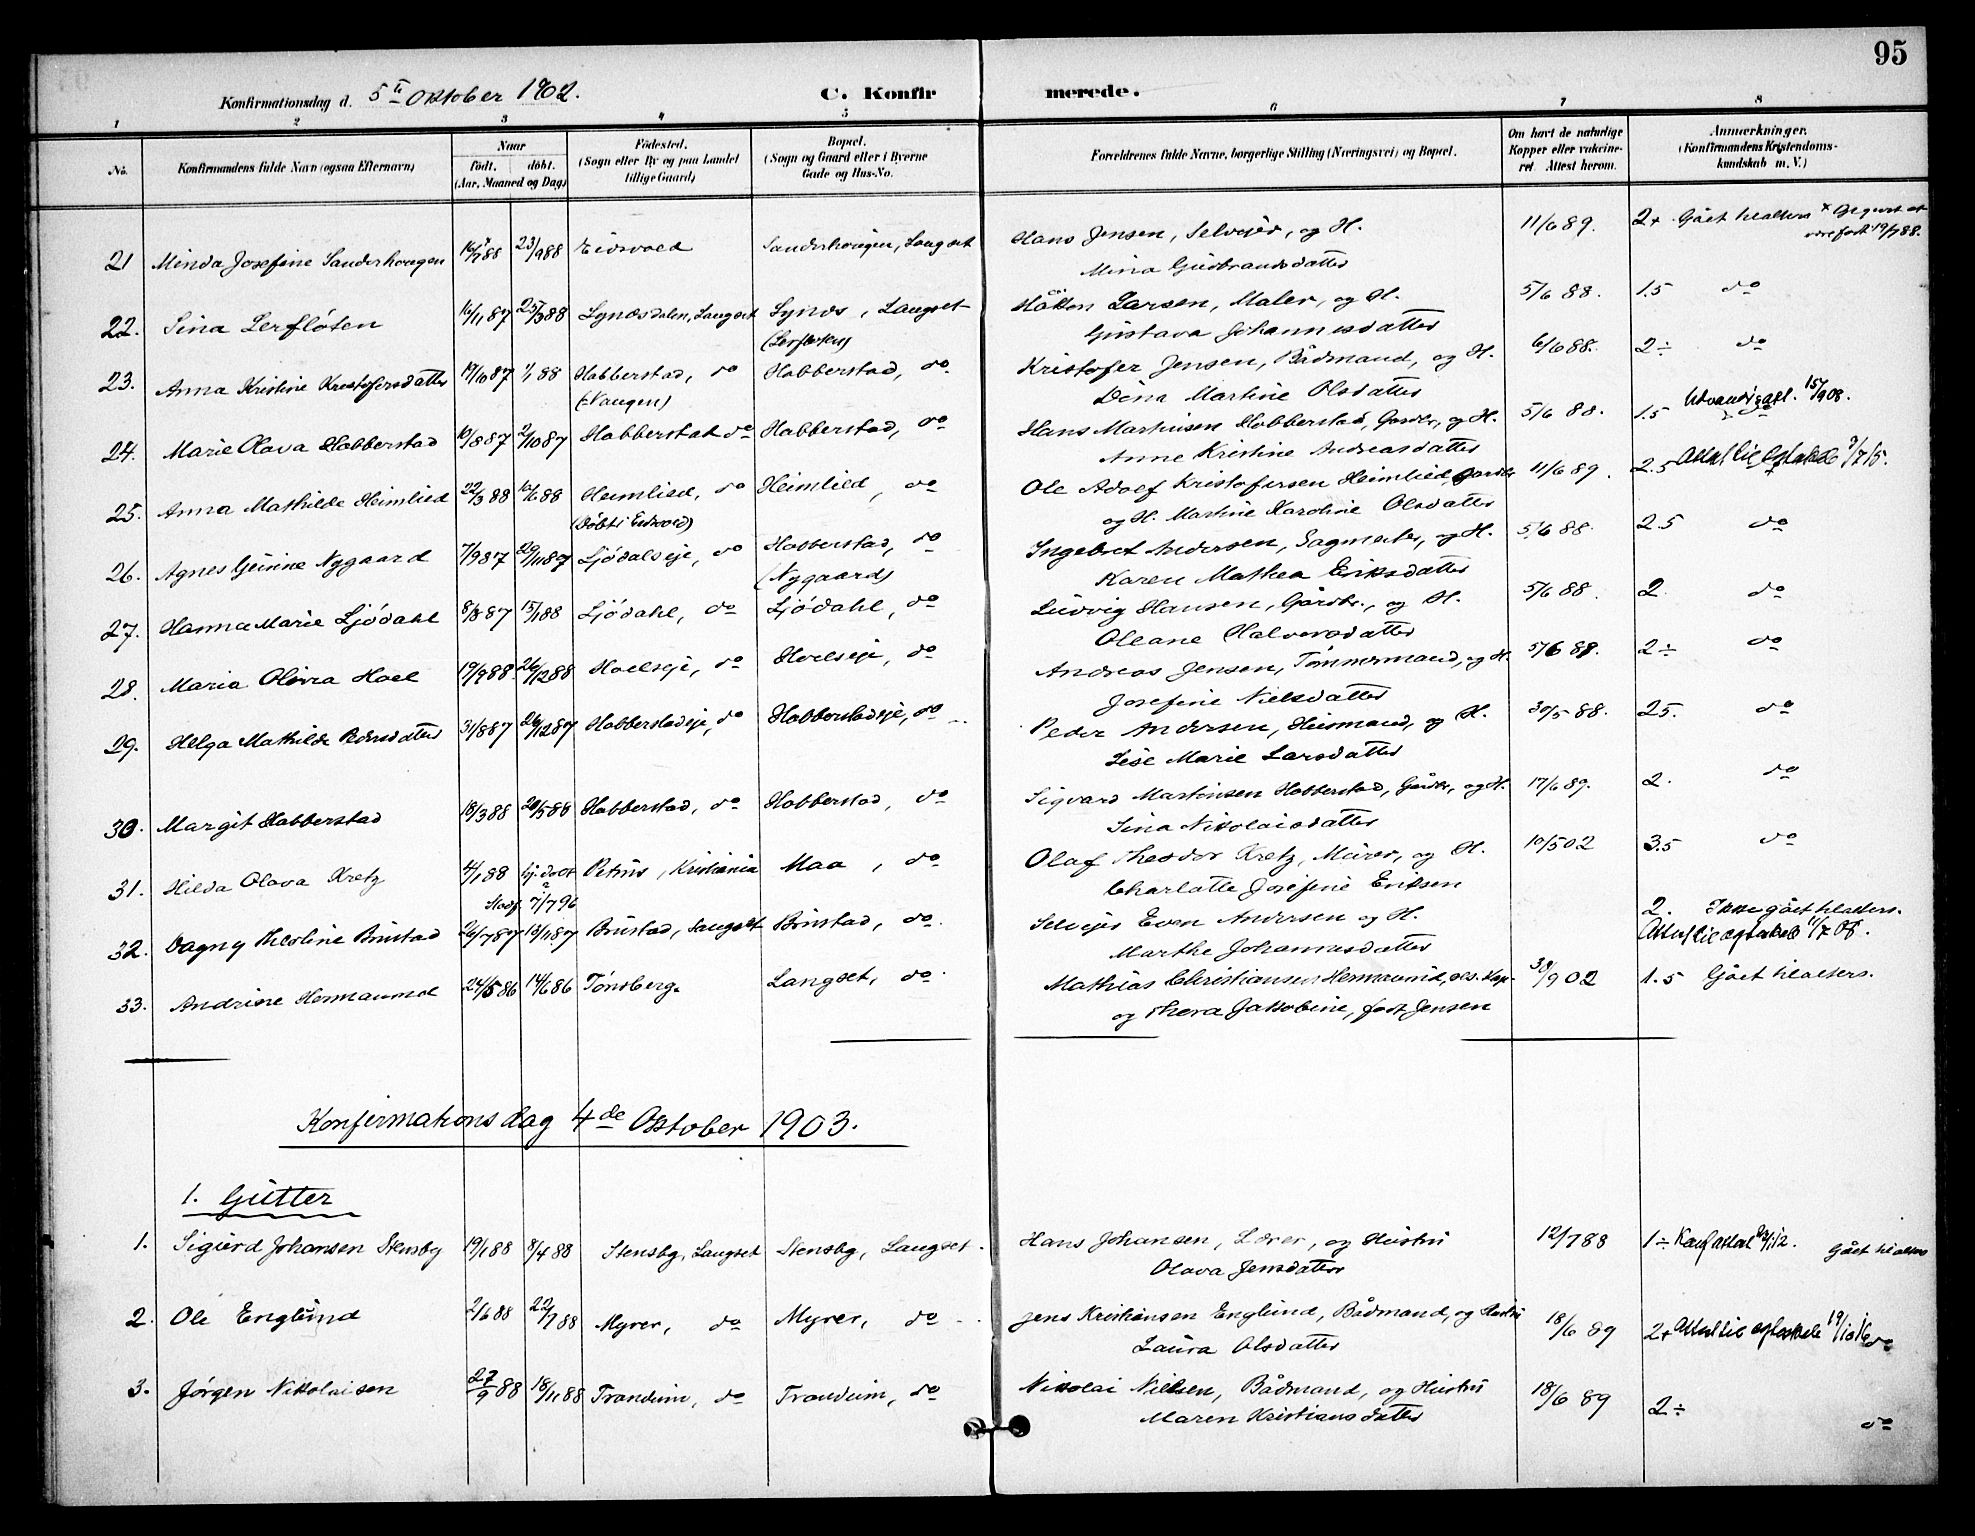 95
Konfirmationsdag d. 5te Oktober 1902.
C. Konfirmerede.
1 2 3 4 5 6 7 8
No.
Konfirmandens fulde Navn (ogsaa Efternavn)
Naar
født. døbt.
(Aar, Maaned og Dag)
Fødested.
(Sogn eller By og paa Landet
tillige Gaard)
Bopæl.
(Sogn og Gaard eller i Byerne
Gade og Hus-No.
Forældrenes fulde Navne, borgerlige Stilling (Næringsvei) og Bopæl.
Om havt de naturlige
Kopper eller vakcine-
ret. Attest herom.
Anmærkninger.
(Konfirmandens Kristendoms-
kundskab m. V.)
21 Minda Josefine Sanderhougen 16/7 88 23/9 88 Eidsvold Sanderhougen, Langset Hans Jensen, Selvejer, og H. 11/6 89. 2+ Gået til alters
Mina Gudbrandsdatter
22. Sina Lerfloten 16/11 87 25/3 88 Synæsdalen, Langset Synæs, Langset Håkon Larsen, Maler, og H. 5/6 88. 1.5 do
(Lerfloten) Gustava Johannesdatter
23. Anna Kristine Kristofersdatter 17/10 87 1/1 88 Habberstad, do Habberstad, do Kristofer Jensen, Bådmand, og H. 6/6 88. 2÷ do
(Haugen) Dina Martine Olsdatter
24. Marie Olava Habberstad 10/8 87 2/10 87 Habberstad do Habberstad, do Hans Martinsen Habberstad, Gardbr, og H. 5/6 88. 1.5 do Udvandr. att. 15/9 08.
Anne Kristine Andreasdatter
25. Anna Mathilde Heimlied 22/3 88 10/6 88 Heimlied, do Heimlied, do Ole Adolf Kristofersen Heimlied, Gardbr 11/6 89. 2.5 Attest til ægteskab 3/7 15.
(Døbt i Eidsvold) og H. Martine Karoline Olsdatter
26. Agnes Gurine Nygaard 7/9 87 20/11 87 Ljødalseje, do Habberstad, do Ingebret Andersen, Sagmester, og H. 5/6 88. 2.5 do
(Nygaard) Karen Mathea Eriksdatter
27. Hanna Marie Ljødahl 8/8 87 15/1 88 Ljødahl, do Ljødahl, do Ludvig Hansen, Gårdbr., og H. 5/6 88. 2. do
Oleane Halvorsdatter
28. Maria Olivia Hoel 19/9 88. 26/12 88 Hoelseje, do Hoelseje, do Andreas Jensen, Tømmermand, og H. 5/6 88. 2÷ do
Josefine Nielsdatter
29. Helga Mathilde Pedersdatter 31/8 87 26/12 87 Habberstadeje, do Habberstadeje, do Peder Andersen, Husmand, og H. 30/5 88. 25. do
Lise Marie Larsdatter
30. Margit Habberstad 18/3 88 20/5 88 Habberstad, do Habberstad, do Sigvard Martinsen Habberstad, Gårdbr, og H. 17/6 89. 2. do
Sina Nikolaisdatter
31. Hilda Olava Kretz 4/1 88 hj.døbt Petrus, Kristiania Maa, do Olaf Theodor Kretz, Murer, og H. 10/5 02 3.5 do
Stadf. 7/7 96 Charlotte Josefine Eriksen
32. Dagny Theoline Brustad 26/7 87 13/11 87 Brustad, Langset Brustad, do. Selvejer Even Andersen og H. 2. Ikke gået til alters.
Marthe Johannesdatter Attest til ægteskab 11/7 08.
33. Andrine Hermannud 24/5 86 14/6 86 Tønsberg. Langset, do. Mathias Christiansen Hermanrud, 30/9 02 1.5 Gået til alters.
og Thora Jakobine, født Jensen
Konfirmationsdag 4de Oktober 1903.
1. Gutter
1. Sigurd Johansen Stensby 19/1 88 8/4 88 Stensby, Langset Stensby, Langset. Hans Johansen, Lærer, og Hustru 12/7 88 1÷ Konf attest Gået til alters
Olava Jensdatter
2. Ole Englund 2/6 88 22/7 88 Myrer, do Myrer, do Jens Kristiansen Englund, Bådmand, og Hustru 18/6 89 2+ Attest til ægteskab 19/10 16 do
Laura Olsdatter
3. Jørgen Nikolaisen 27/9 88 18/11 88 Trandum, do Trandum, do Nikolai Nielsen, Bådmand, og Hustru 18/6 89 2÷ do
Maren Kristiansdatter